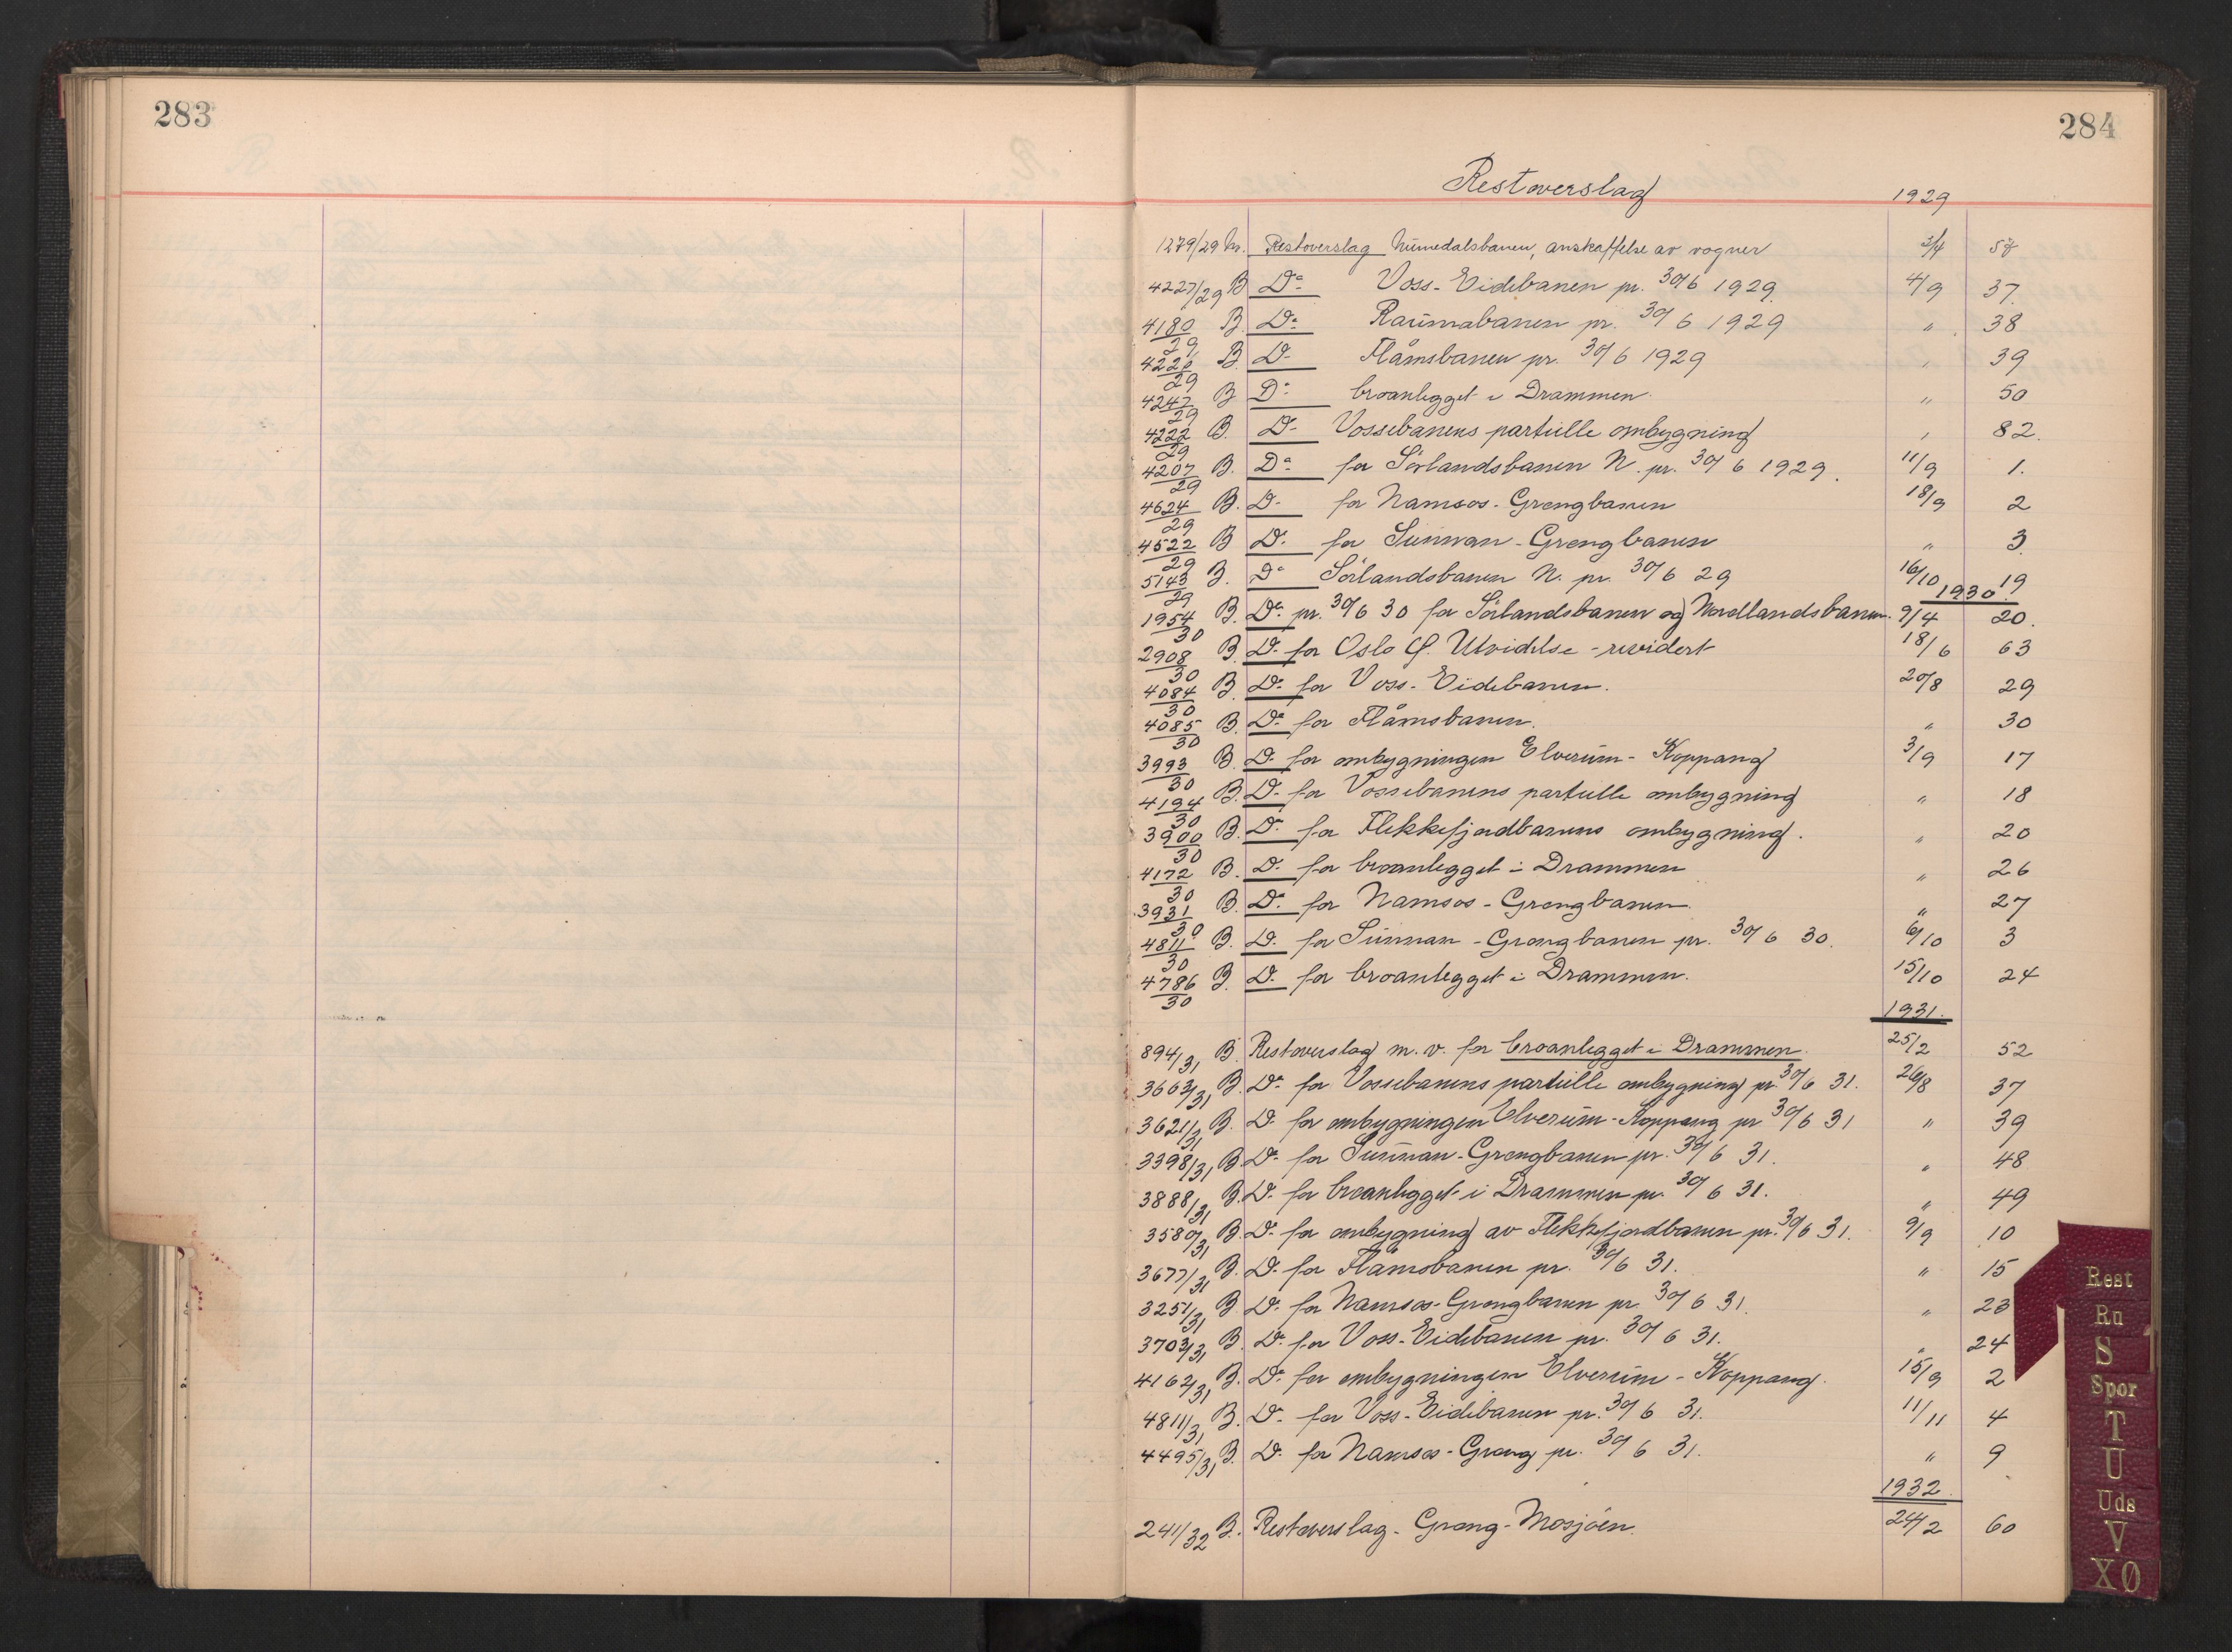 283
284
Restoverslag 1929
1279/29 M. Restoverslag Numedalsbanen, anskaffelse av vogner 3/4 57
4227/29 B Do Voss-Eidebanen pr. 30/6 1929. 4/9 37.
4180/29 B. Do Raumabanen pr. 30/6 1929 " 38
4228/29 B. Do Flåmsbanen pr. 30/6 1929 " 39
4247/29 B Do broanlegget i Drammen " 50
4222/29 B. Do Vossebanens partielle ombygning " 82.
4207/29 B. Do for Sörlandsbanen N. pr. 30/6 1929. 11/9 1.
4624/29 B. Do for Namsos-Grongbanen 18/9 2
4522/29 B Do for Sunnan-Grongbanen " 3
5143/29 B. Do Sörlandsbanen N. pr. 30/6 29 16/10 19
1930.
1954/30 B. Do pr. 30/6 30 for Sörlandsbanen og Nordlandsbanen. 9/4 20.
2908/30 B. Do for Oslo Ö. Utvidelse - revidert 18/6 63
4084/30 B. Do for Voss-Eidebanen. 20/8 29
4085/30 B. Do for Flåmsbanen. " 30
3993/30 B. Do for ombygningen Elverum-Koppang 3/9 17
4194/30 B. Do for Vossebanens partielle ombygning " 18
3900/30 B. Do for Flekkefjordbanens ombygning. " 20
4172/30 B. Do for broanlegget i Drammen " 26
3931/30 B. Do for Namsos-Grongbanen " 27
4811/30 B. Do for Sunnan-Grongbanen pr. 30/6 30. 6/10 3
4786/30 B. Do for broanlegget i Drammen. 15/10 24
1931.
894/31 B. Restoverslag m. v. for broanlegget i Drammen. 25/2 52
3663/31 B. Do for Vossebanens partielle ombygning pr. 30/6 31. 26/8 37
3621/31 B. Do for ombygningen Elverum-Koppang pr 30/6 31 " 39
3398/31 B Do for Sunnan-Grongbanen pr. 30/6 31. " 48
3888/31 B. Do for broanlegget i Drammen pr. 30/6 31. " 49
3580/31 B. Do for ombygning av Flekkefjordbanen pr. 30/6 31. 9/9 10
3677/31 B. Do for Flåmsbanen pr. 30/6 31. " 15
3251/31 B. Do for Namsos-Grongbanen pr. 30/6 31. " 23
3703/31 B. Do for Voss-Eidebanen pr. 30/6 31. " 24
4162/31 B. Do for ombygningen Elverum-Koppang. 15/9 2
4811/31 B. Do for Voss-Eidebanen pr. 30/6 31. 11/11 4
4495/31 B. Do for Namsos-Grong pr. 30/6 31. " 9
1932.
241/32 B. Restoverslag - Grong-Mosjöen. 24/2 60
Rest
Ru
S
Spor
T
U
Uds
V
XØ